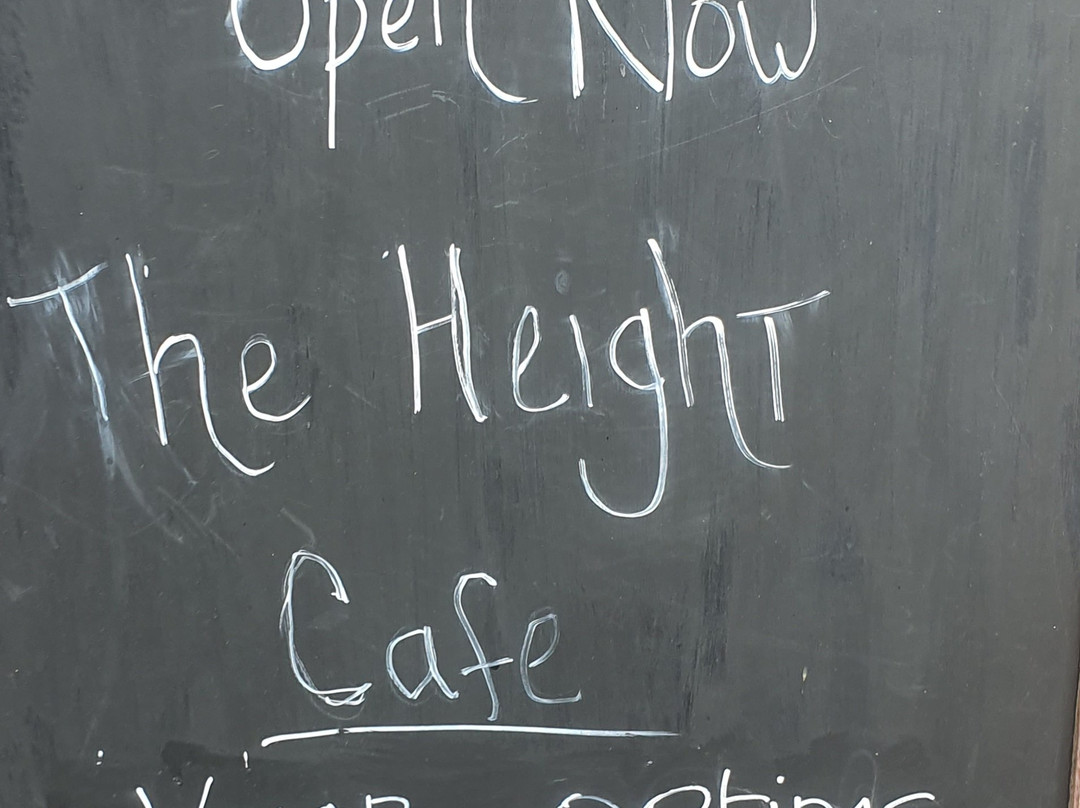 Open Now
The Height
Cafe